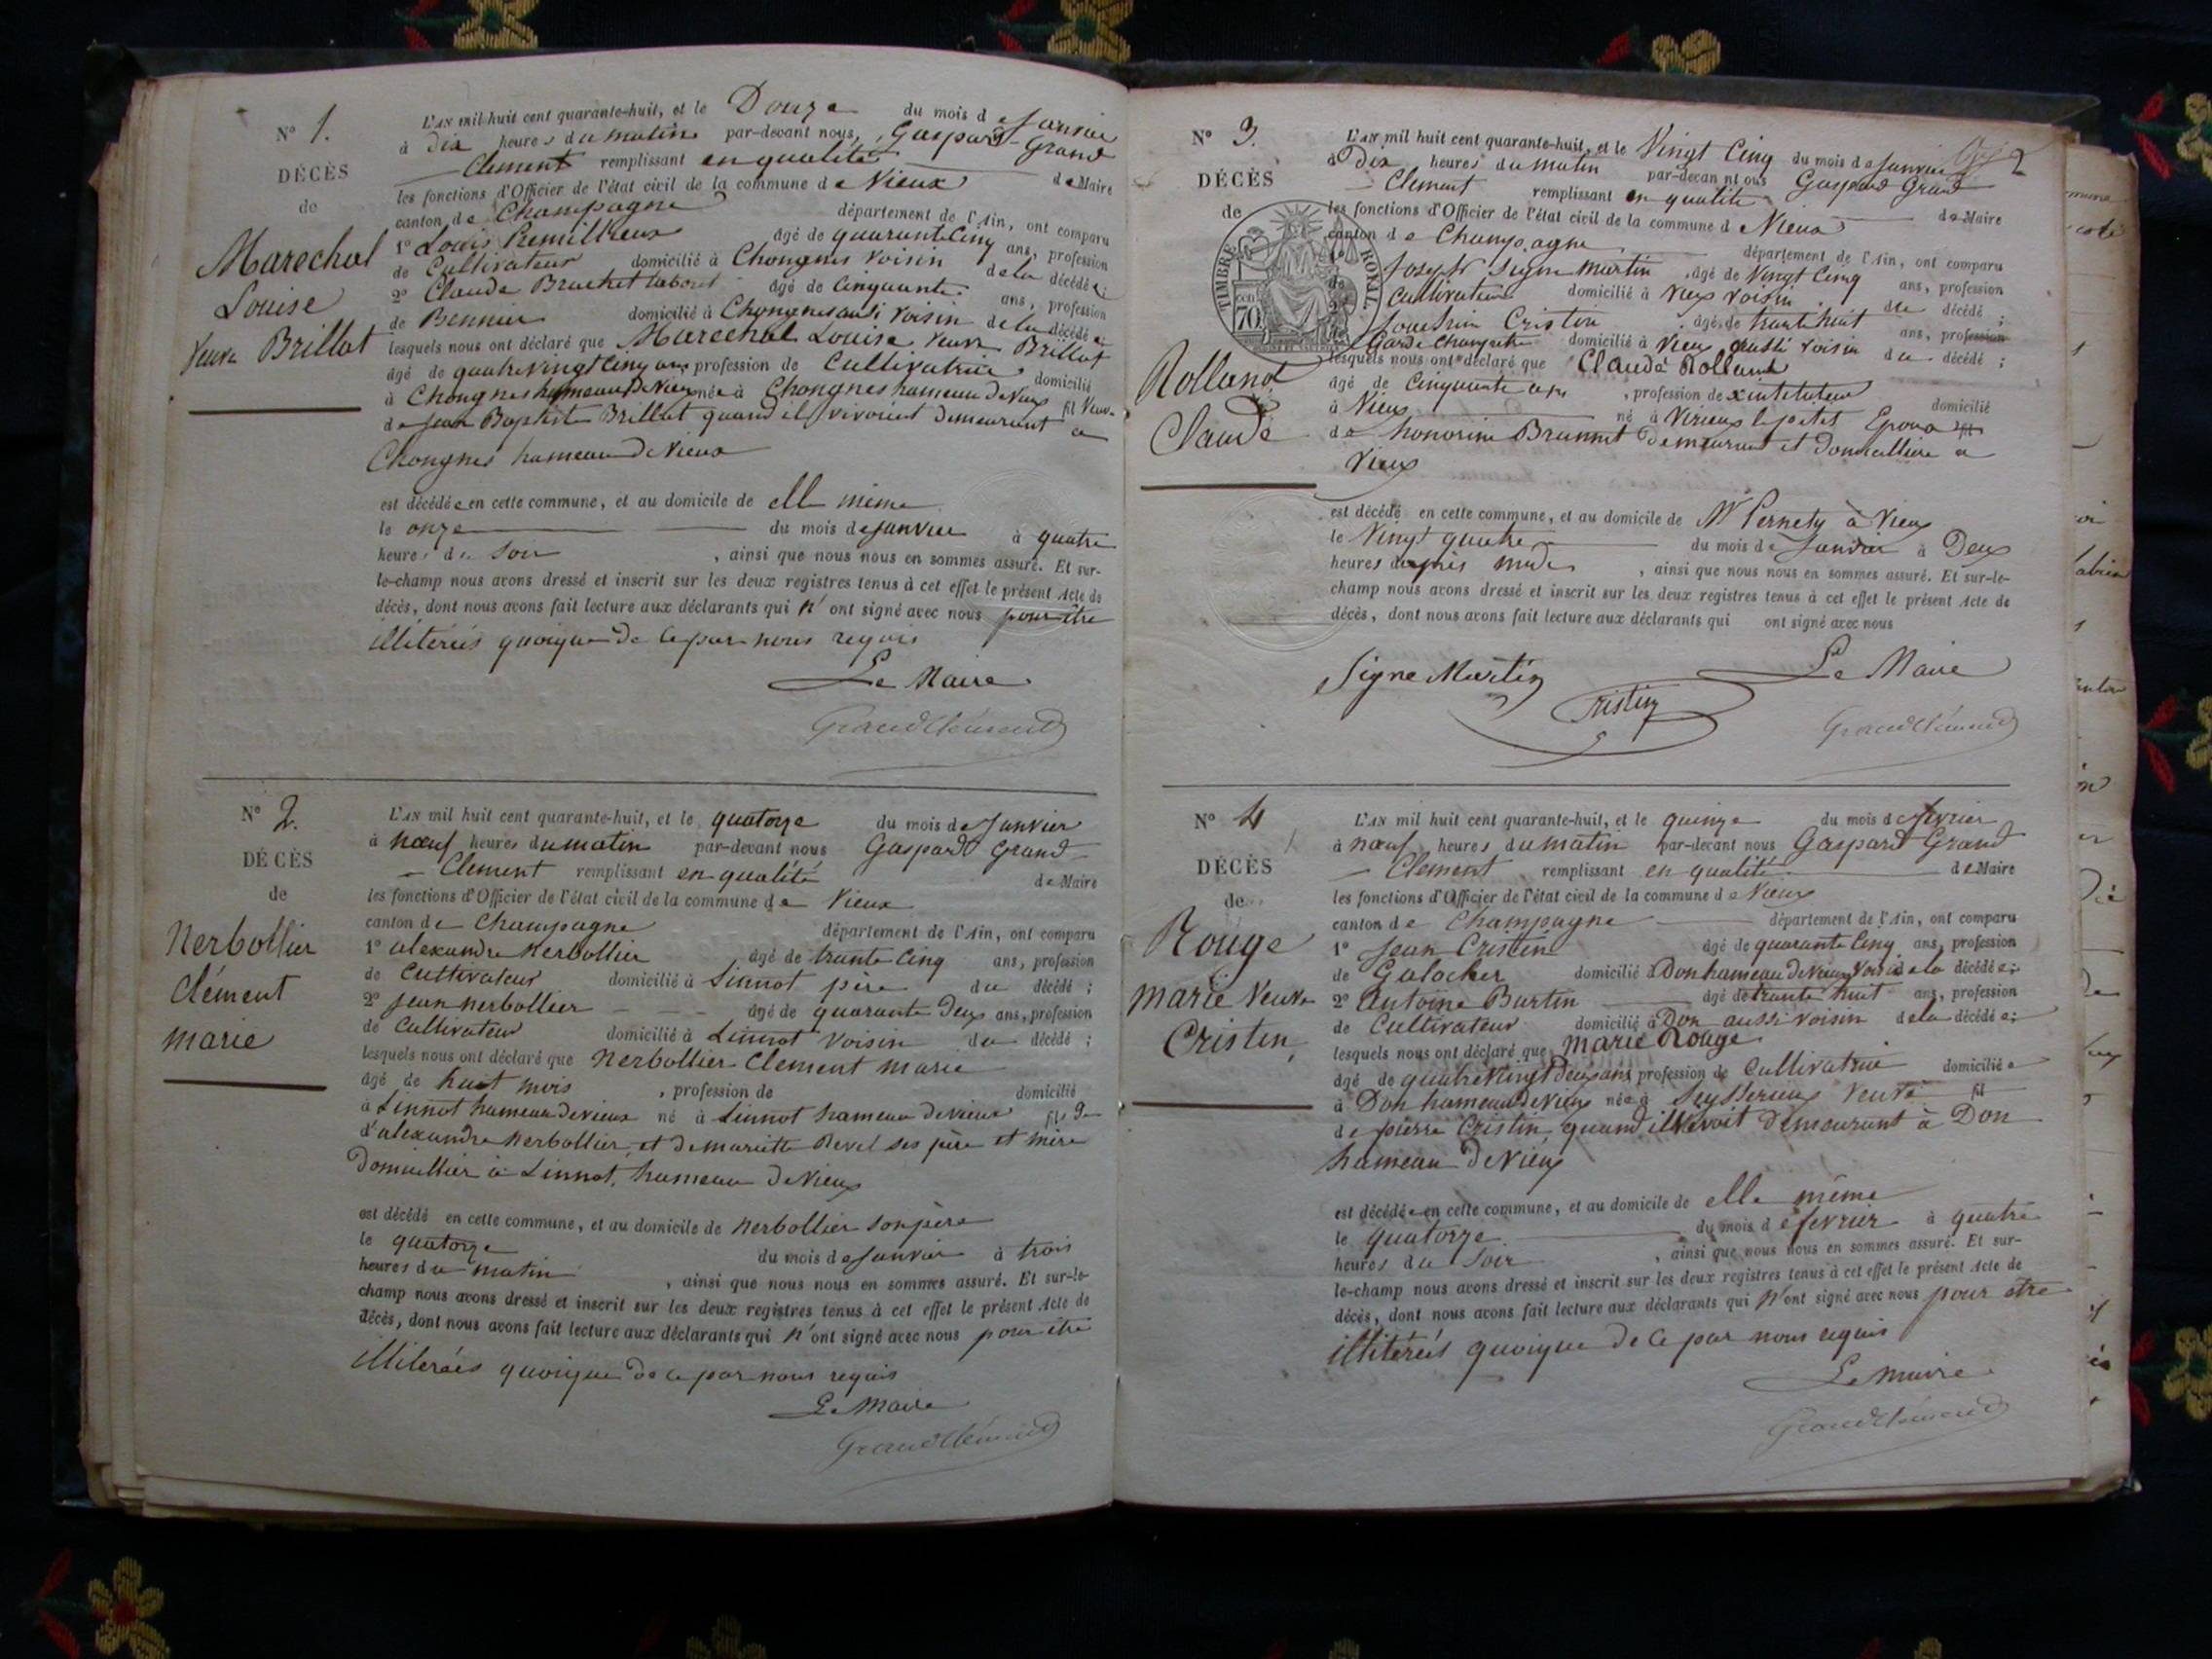 N° 1.
DÉCÈS
de
Marechal
Louise
Veuve Brillat
L'AN mil huit cent quarante-huit, et le Douze du mois de Janvier
à Dix heures du matin par-devant nous, Gaspard Grand
Clement remplissant en qualité de Maire
les fonctions d'Officier de l'état civil de la commune de Vieux
canton de Champagne département de l'Ain, ont comparu
1° Louis Premillieux âgé de quarante Cinq ans, profession
de Cultivateur domicilié à Chongnes voisin de la décédée;
2° Claude Brachet âgé de Cinquante ans, profession
de domicilié à Chongnes aussi voisin de la décédée
lesquels nous ont déclaré que Marechal Louise Veuve Brillat
âgé de quatre vingt Cinq ans profession de Cultivatrice domicilié
à Chongnes hameau de Vieux née à Chongnes hameau de Vieux fil Veuve
de Jean Baptiste Brillat quand il vivoient demeurant a
Chongnes hameau de Vieux
est décédée en cette commune, et au domicile de elle même
le onze du mois de Janvier à quatre
heures du Soir , ainsi que nous nous en sommes assuré. Et sur-
le-champ nous avons dressé et inscrit sur les deux registres tenus à cet effet le présent Acte de
décès, dont nous avons fait lecture aux déclarants qui n'ont signé avec nous pour être
illiterés quoique de ce par nous requis
Le Maire
GrandClément
N° 2.
DÉCÈS
de
Nerbollier
Clément
marie
L'AN mil huit cent quarante-huit, et le quatorze du mois de Janvier
à nœuf heures du matin par-devant nous Gaspard Grand
Clement remplissant en qualité de Maire
les fonctions d'Officier de l'état civil de la commune de Vieux
canton de Champagne département de l'Ain, ont comparu
1° alexandre Nerbollier âgé de trante Cinq ans, profession
de Cultivateur domicilié à Linnot père du décédé;
2° Jean nerbollier âgé de quarante Deux ans, profession
de Cultivateur domicilié à Linnot voisin du décédé;
lesquels nous ont déclaré que Nerbollier Clement marie
âgé de huit mois , profession de domicilié
à Linnot hameau de vieux né à Linnot hameau de vieux fils
d'alexandre Nerbollier, et de mariette Revel ses père et mère
Domicillier à Linnot, hameau de Vieux
est décédé en cette commune, et au domicile de Nerbollier son père
le quatorze du mois de Janvier à trois
heures du matin , ainsi que nous nous en sommes assuré. Et sur-le-
champ nous avons dressé et inscrit sur les deux registres tenus à cet effet le présent Acte de
décès, dont nous avons fait lecture aux déclarants qui n'ont signé avec nous pour être
illiterés quoique de ce par nous requis
Le Maire
GrandClément
2
N° 3.
DÉCÈS
de
TIMBRE ROYAL
70
Rolland
Claude
L'AN mil huit cent quarante-huit, et le Vingt Cinq du mois de Janvier
à Dix heures du matin par-devan nt ous Gaspard Grand
Clement remplissant en qualité de Maire
les fonctions d'Officier de l'état civil de la commune de Vieux
canton de Champagne département de l'Ain, ont comparu
Joseph Signe Martin âgé de Vingt Cinq ans, profession
Cultivateur domicilié à Vieux voisin du décédé;
Cristin âgé de trante huit ans, profession
Garde Champetre domicilié à Vieux aussi voisin du décédé;
lesquels nous ont déclaré que Claude Rolland
âgé de Cinquante ans , profession de domicilié
à Vieux né à Virieux le petit Epoux fil
de honorine Brunnet Demeurant et Domicillier a
Vieux
est décédé en cette commune, et au domicile de Mr Pernety à Vieux
le Vingt quatre du mois de Janvier à Deux
heures après midi , ainsi que nous nous en sommes assuré. Et sur-le-
champ nous avons dressé et inscrit sur les deux registres tenus à cet effet le présent Acte de
décès, dont nous avons fait lecture aux déclarants qui ont signé avec nous
Signe Martin Cristin Le Maire
GrandClément
N° 4
DÉCÈS
de
Rouge
marie Veuve
Cristin,
L'AN mil huit cent quarante-huit, et le quinze du mois de fevrier
à nœuf heures du matin par-devant nous Gaspard Grand
Clement remplissant en qualité de Maire
les fonctions d'Officier de l'état civil de la commune de Vieux
canton de Champagne département de l'Ain, ont comparu
1° Jean Cristin âgé de quarante Cinq ans, profession
de Galocher domicilié à Don hameau de vieux voisin de la décédée;
2° Antoine Burtin âgé de trante huit ans, profession
de Cultivateur domicilié à Don aussi voisin de la décédée;
lesquels nous ont déclaré que marie Rouge
âgé de quatre Vingt Deux ans profession de Cultivatrice domiciliée
à Don hameau de Vieux née à Seysserieux Veuve fil
de pierre Cristin, quand il vivoit Demeurant à Don
hameau de Vieux
est décédée en cette commune, et au domicile de elle même
le quatorze du mois de fevrier à quatre
heures du Soir , ainsi que nous nous en sommes assuré. Et sur-
le-champ nous avons dressé et inscrit sur les deux registres tenus à cet effet le présent Acte de
décès, dont nous avons fait lecture aux déclarants qui n'ont signé avec nous pour être
illiterés quoique de ce par nous requis
Le Maire
GrandClément